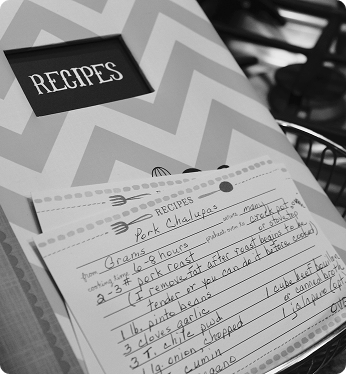 RECIPES
RECIPES
Pork Chalupas
from Grams serves many
cooking time 6-8 hours preheat oven to crock pot
or stovetop
2-3 # pork roast
(I remove fat after roast begins to be
tender or you can do it before cooking)
1 lb. pinto beans
3 cloves garlic 1 cube beef
3 T. chile pwd or canned
1 lg onion, chopped 1 jalapeno
cumin